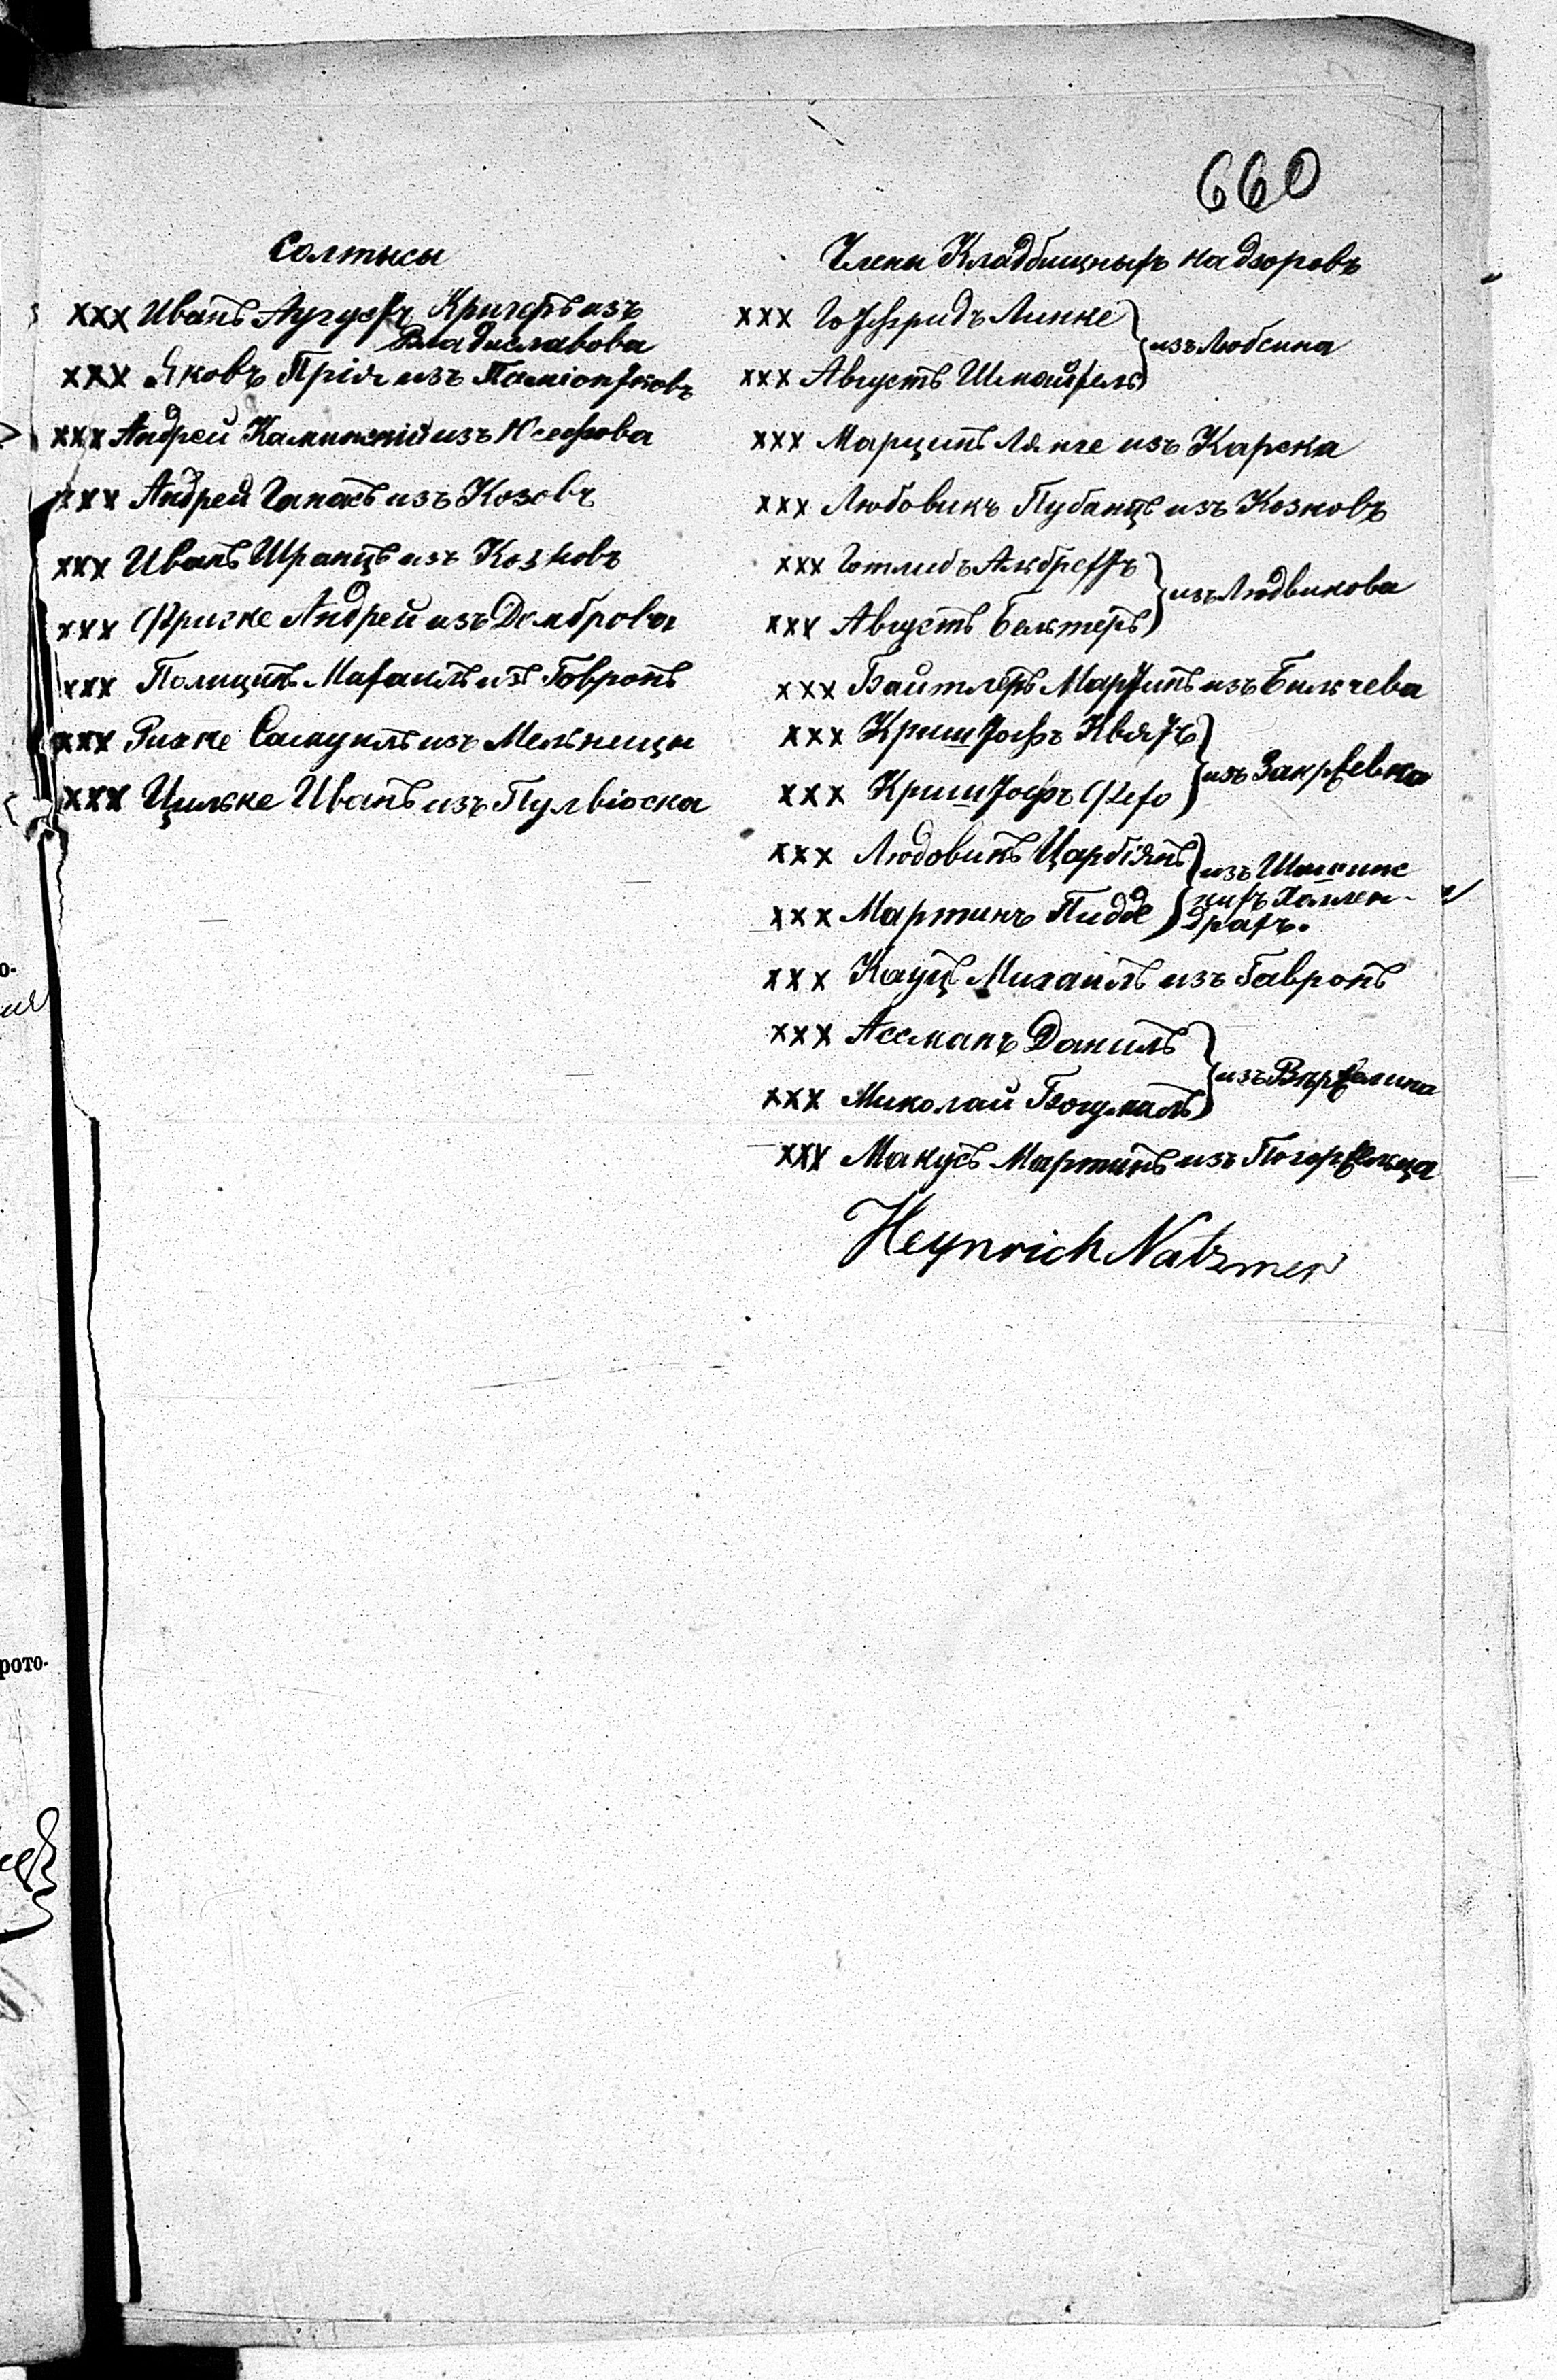 660
Солтысы
xxx Иванъ Аугустъ Кригеръ изъ
Владиславова
xxx Яковъ Прія изъ
xxx Андрей Каминскій изъ Юсефова
xxx Андрей Гапасъ изъ Козовъ
xxx Иванъ Шранцъ изъ Козковъ
xxx Фриске Андрей изъ Домброва
xxx Полицинъ Михаилъ изъ Говронъ
xxx Риске Самуилъ изъ Мельницы
xxx Цильке Иванъ изъ Пулвіоска
Члены Кладбищныхъ надзоровъ
xxx Готфридъ Линке
xxx Августъ Шмайхель
изъ Любсина
xxx Марцинъ Лянге изъ Карска
xxx Людовикъ Пубанцъ изъ Козковъ
xxx Готлибъ Альбрехтъ
xxx Августъ Бельтеръ
изъ Людвикова
xxx Байтлеръ Мартинъ изъ Бильчева
xxx Криштофъ Квятъ
xxx Криштофъ
изъ Закржевка
xxx Людовикъ Царбіянъ
xxx Мартинъ Пидде
изъ Шишинс
кихъ Холлен-
драхъ.
xxx Кауцъ Михаилъ изъ Гавронъ
xxx Ассманъ Данилъ
xxx Миколай Богумилъ
изъ
xxx Макусъ Мартинъ изъ Погоржельца
Heynrich Natzmer
о-
рото-